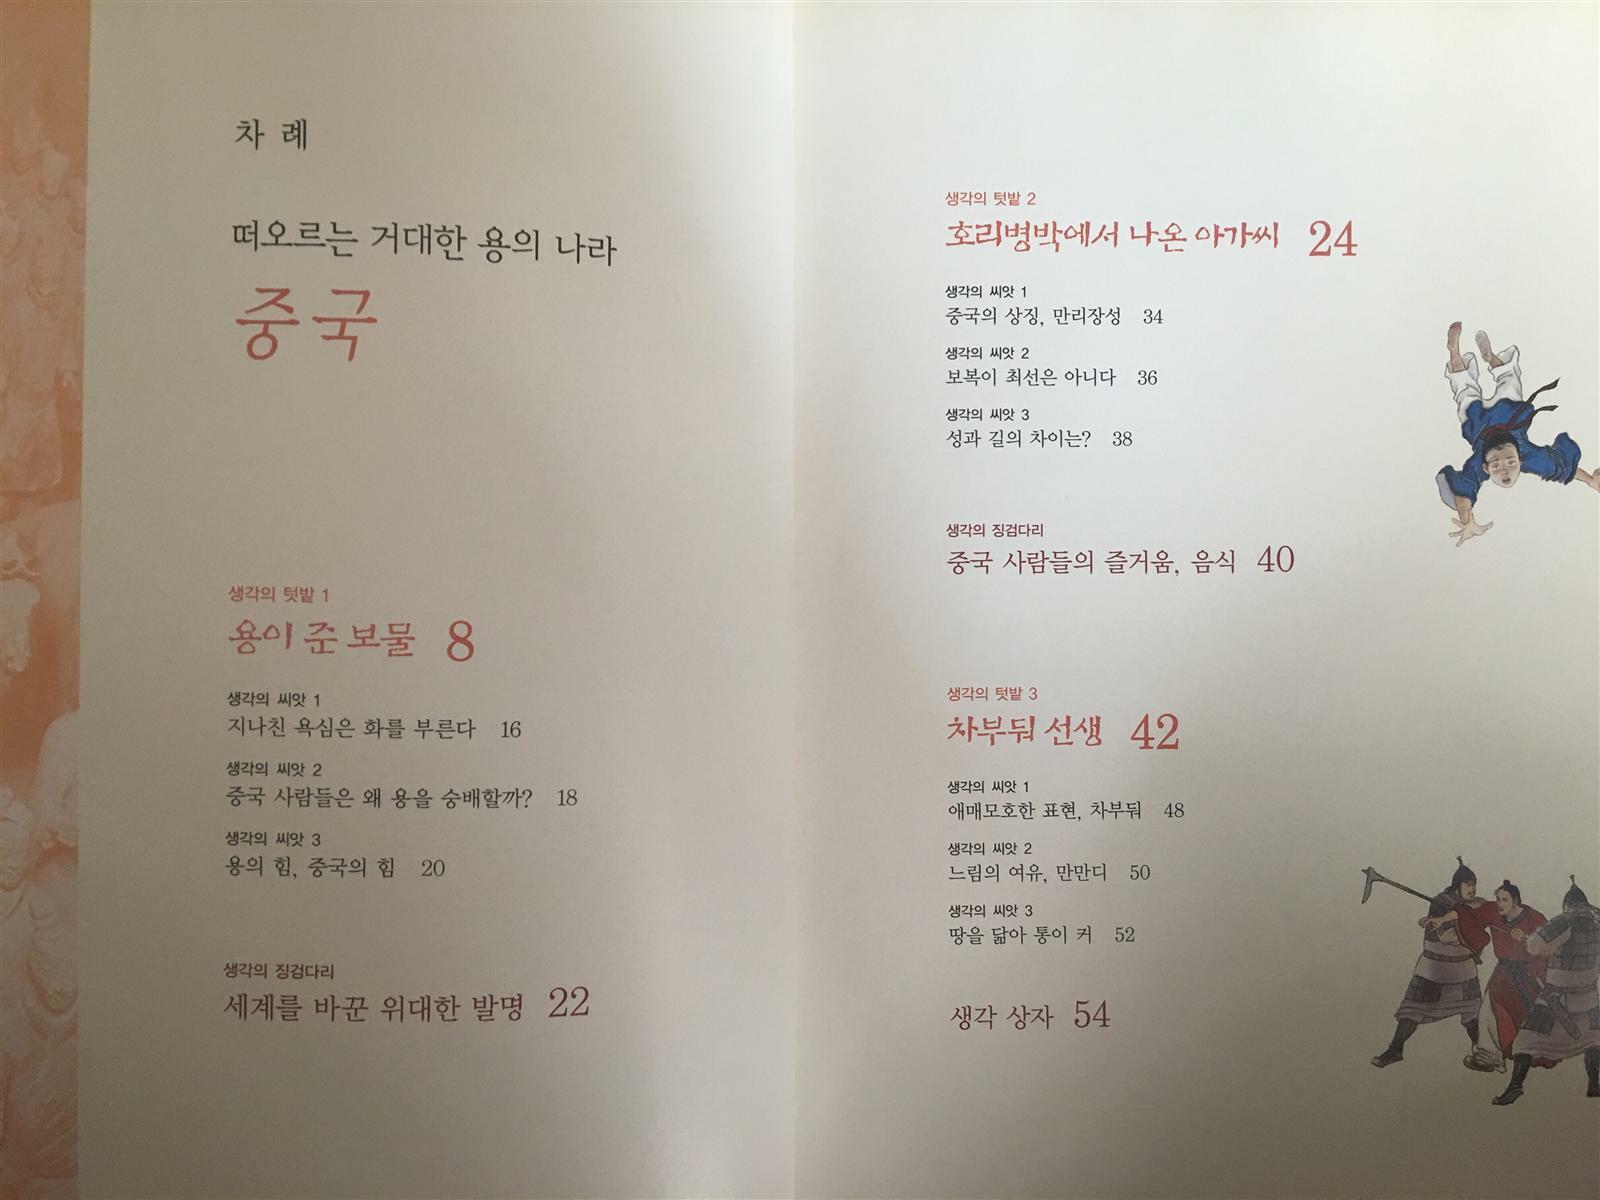 차 례
떠오르는 거대한 용의 나라
중국
생각의 텃밭 1
용이 준 보물 8
생각의 씨앗 1
지나친 욕심은 화를 부른다 16
생각의 씨앗 2
중국 사람들은 왜 용을 숭배할까? 18
생각의 씨앗 3
용의 힘, 중국의 힘 20
생각의 징검다리
세계를 바꾼 위대한 발명 22
생각의 텃밭 2
호리병박에서 나온 아가씨 24
생각의 씨앗 1
중국의 상징, 만리장성 34
생각의 씨앗 2
보복이 최선은 아니다 36
생각의 씨앗 3
성과 길의 차이는? 38
생각의 징검다리
중국 사람들의 즐거움, 음식 40
생각의 텃밭 3
차부둬 선생 42
생각의 씨앗 1
애매모호한 표현, 차부둬 48
생각의 씨앗 2
느림의 여유, 만만디 50
생각의 씨앗 3
땅을 닮아 통이 커 52
생각 상자 54